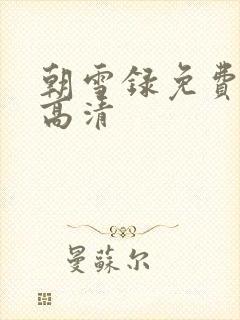 朝雪録免費
高清
曼蘇尔